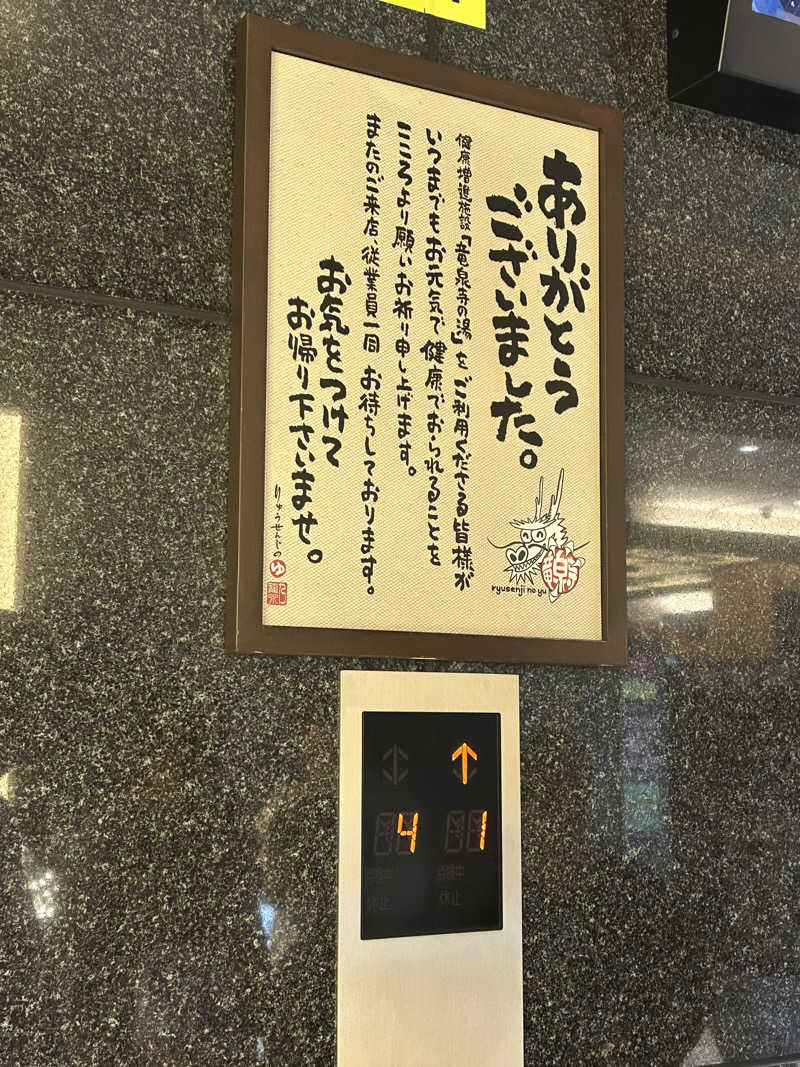 ありがとう
ございました。
健康増進施設「竜泉寺の湯」を ご利用くださる皆様が
いつまでもお元気で 健康でおられることを
こころより願い、お祈り申し上げます。
またのご来店、従業員一同 お待ちしております。
お気をつけて
お帰り下さいませ。
りゅうせんじの
ゆ
ryusenji no yu
4 1
点検中 点検中
休止 休止